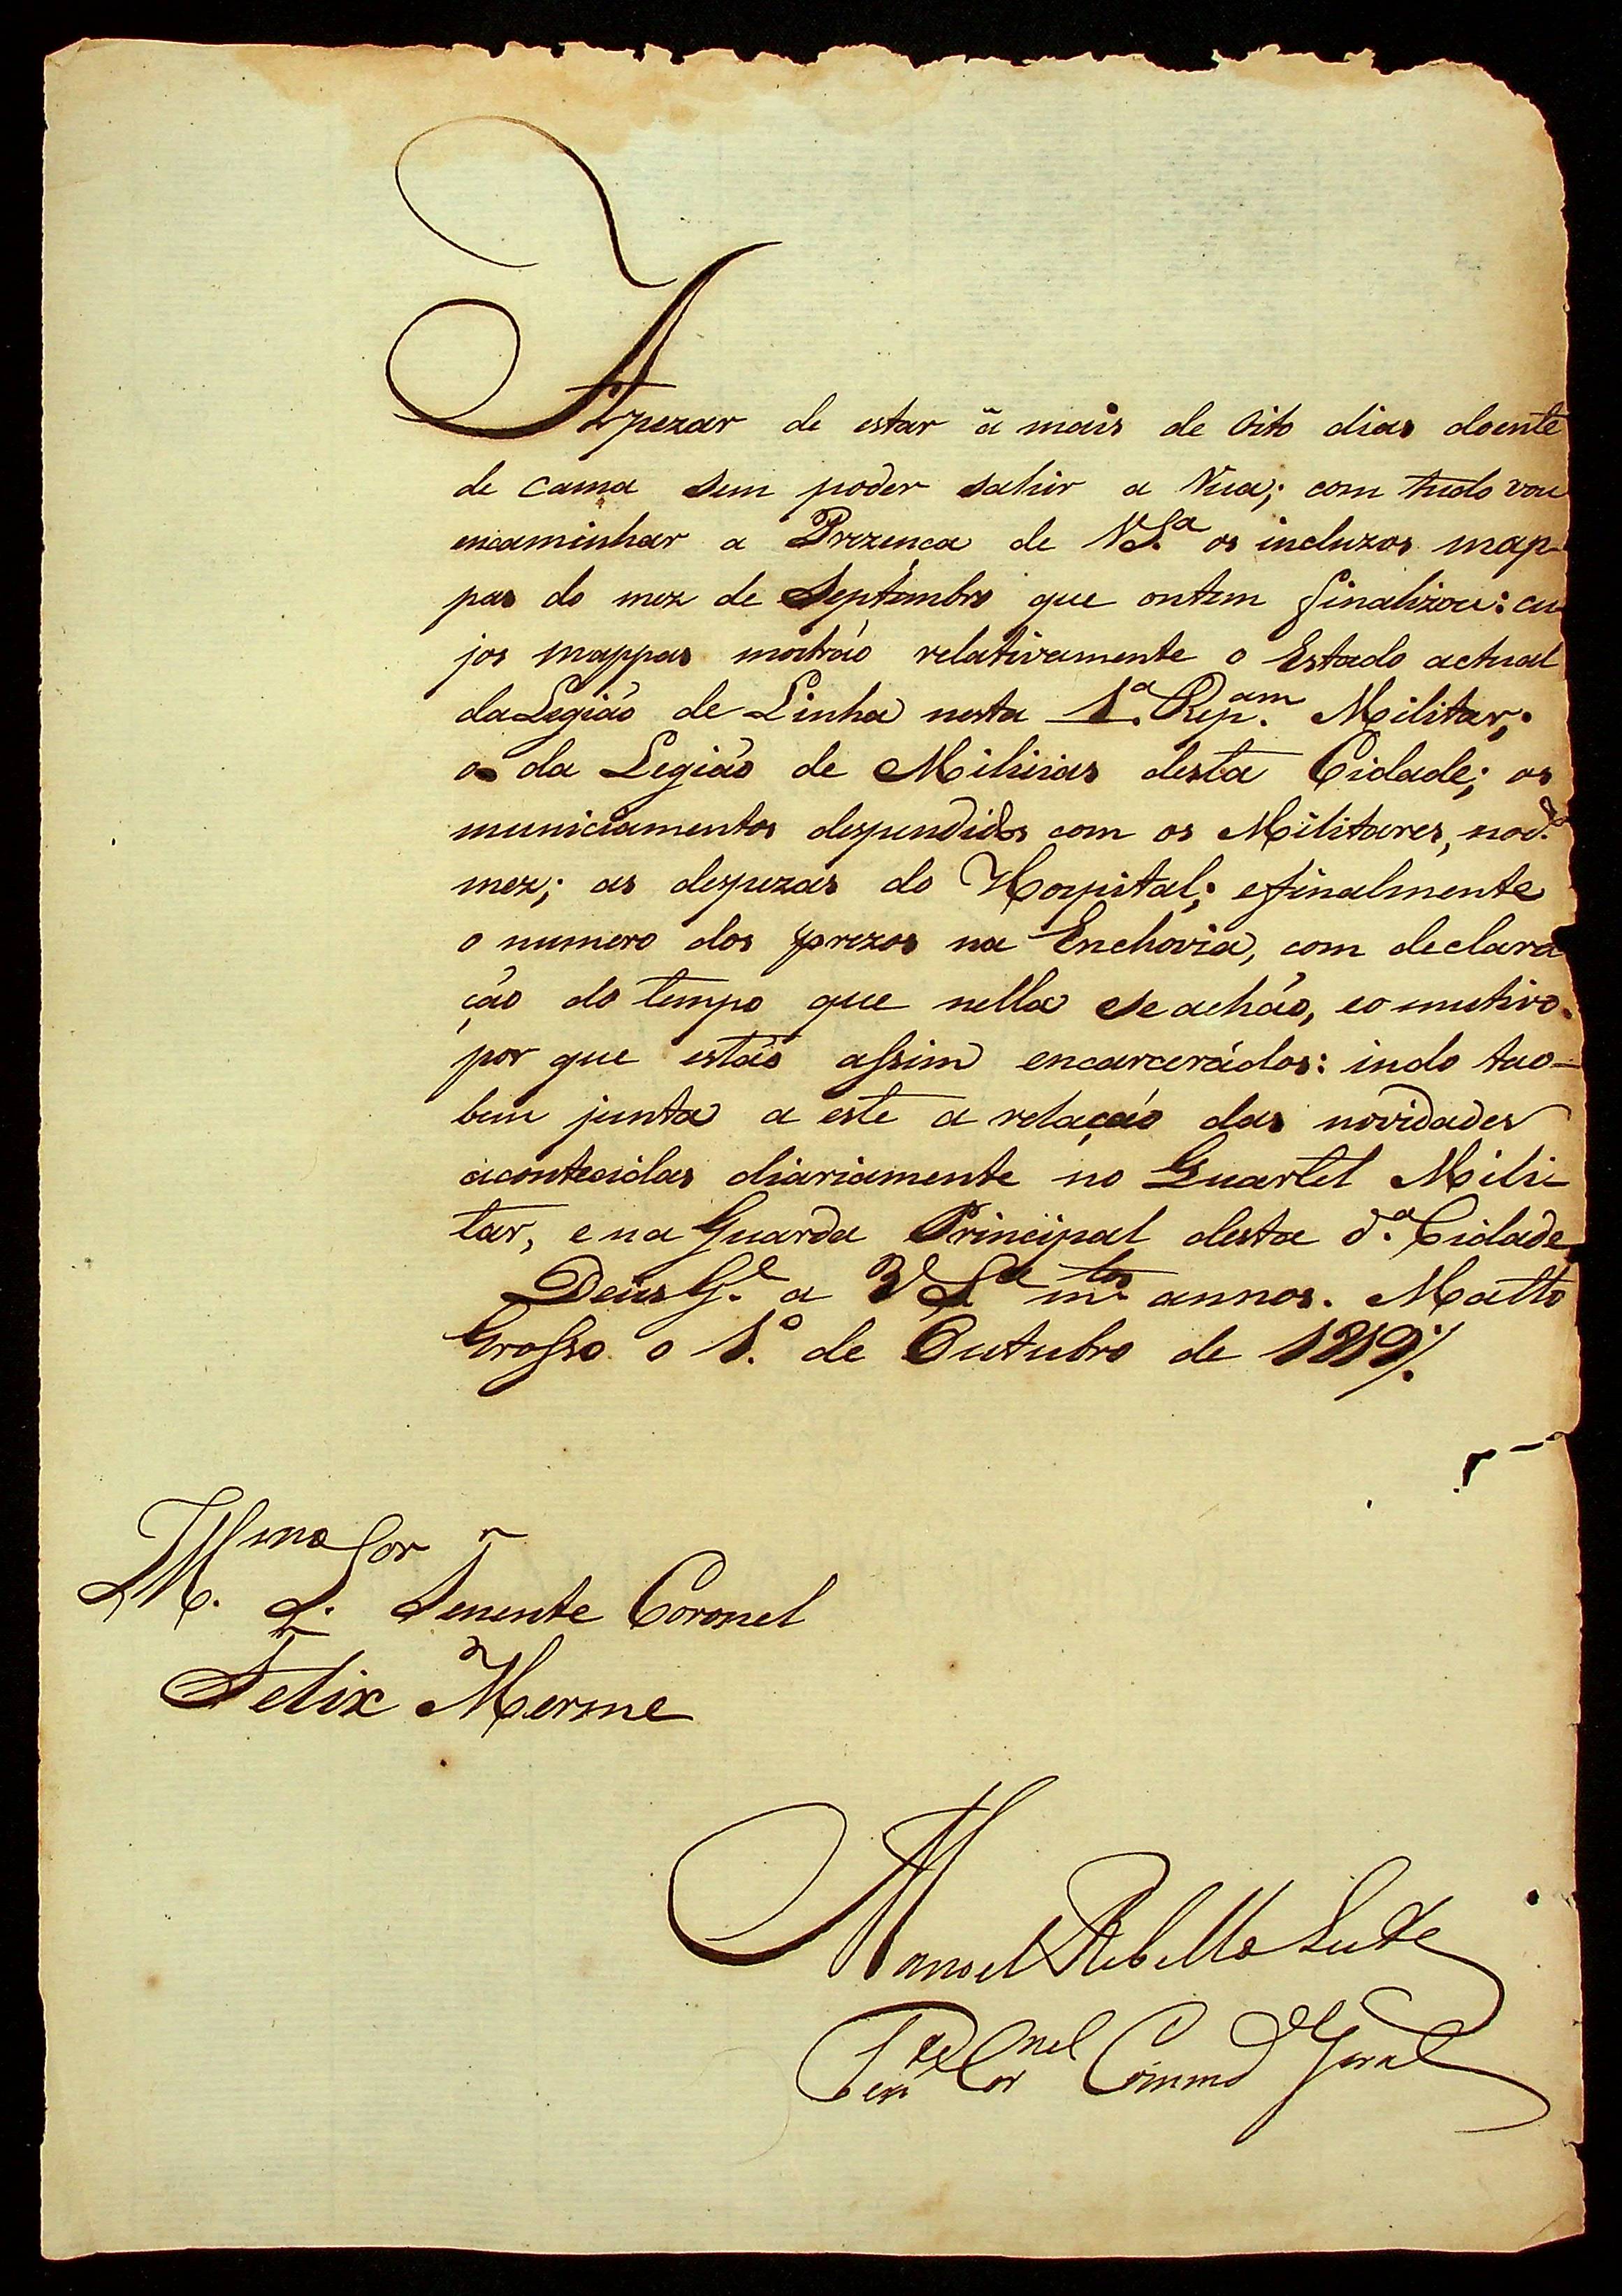 Apezar de estar ã mais de Oito dias doente
de cama sem poder sahir a Rua; com tudo vou
encaminhar a Prezenca de V.S.ª os incluzos map-
pas do mez de Septembro que ontem finalizou: cu-
jos mappas mostráo relativamente o Estado actual
da Legiáo de Linha nesta 1.ª Rep.am Militar;
o da Legiáo de Milicias desta Cidade; os
municiamentos despendidos com os Militares, no d.º
mez; as despezas do Hospital; e finalmente
o numero dos prezos na Enchovia, com declara
çáo do tempo que nella se acháo, e o mutivo
por que estáo assim encarcerádos: indo tao-
bem junta a este a relaçáo das novidades
acontecidas diariamente no Quartel Mili-
tar, e na Guarda Principal desta d.ª Cidade
Deus G.e a V S.ª m.tos annos. Matto
Grosso o 1.º de Outubro de 1819
Ill.mo S.or Tenente Coronel
Felix Merme
Manoel Rebello Leite
Ten.te Cor.nel Comm.d Geral